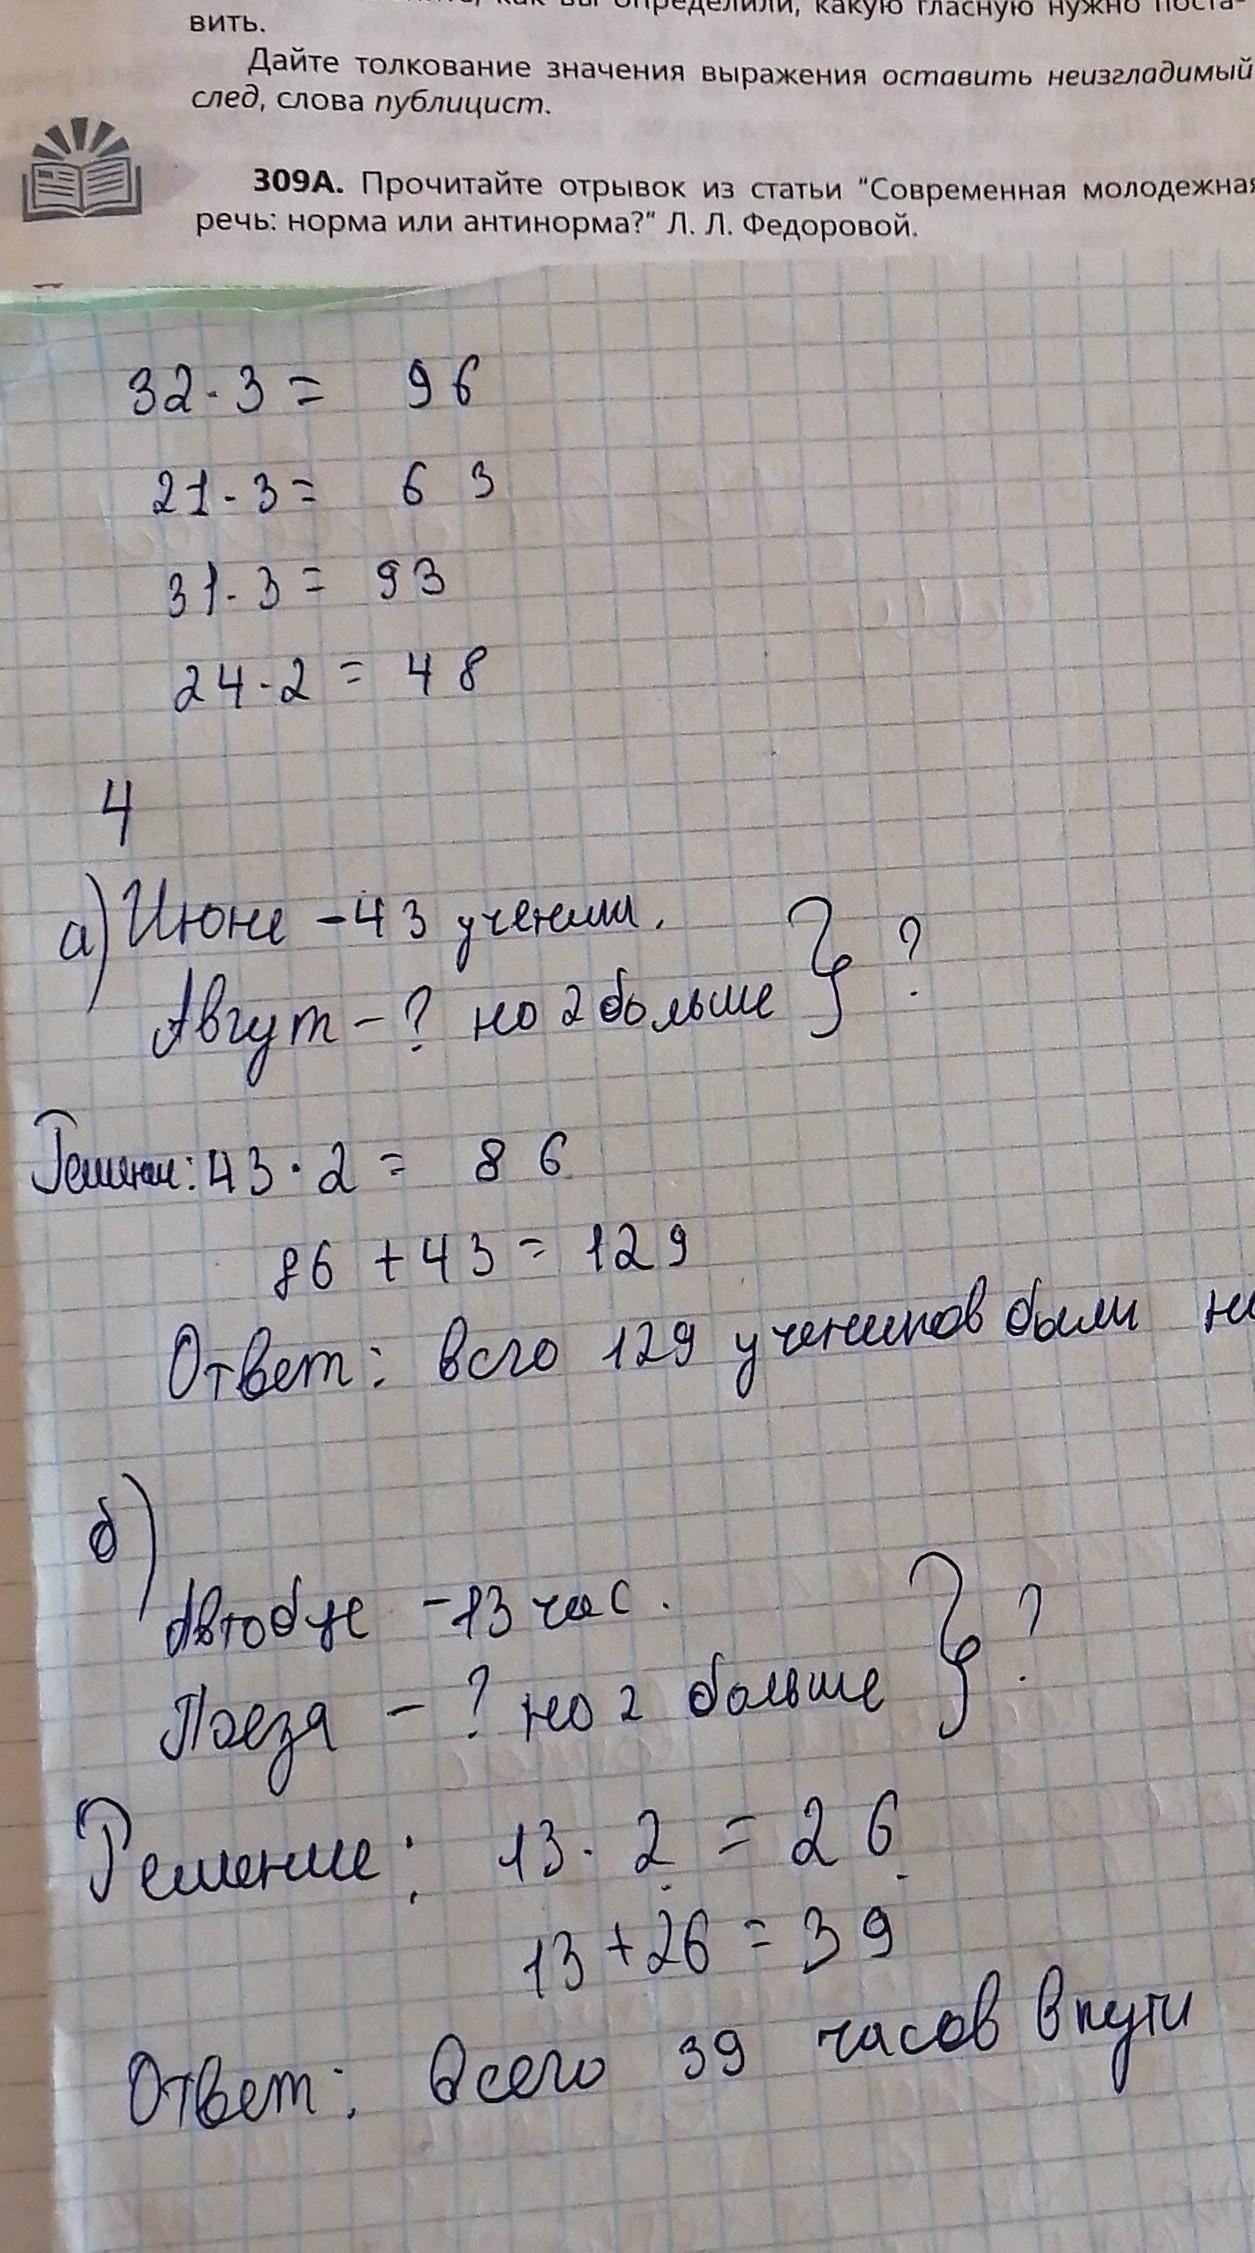 вить.
Дайте толкование значения выражения оставить неизгладимый
след, слова публицист.
309А. Прочитайте отрывок из статьи "Современная молодежная
речь: норма или антинорма?" Л. Л. Федоровой.
32·3= 96
21·3= 63
31·3= 93
24·2= 48
4
а) Июне -43 ученик. } ?
Авгут -? но 2 больше
Решени: 43·2= 86
86+43=129
Ответ: всго 129 учеников были
б)
Автобус -13 час. } ?
Поезд -? но 2 больше
Решение: 13·2=26
13+26=39
Ответ: Всего 39 часов в пути